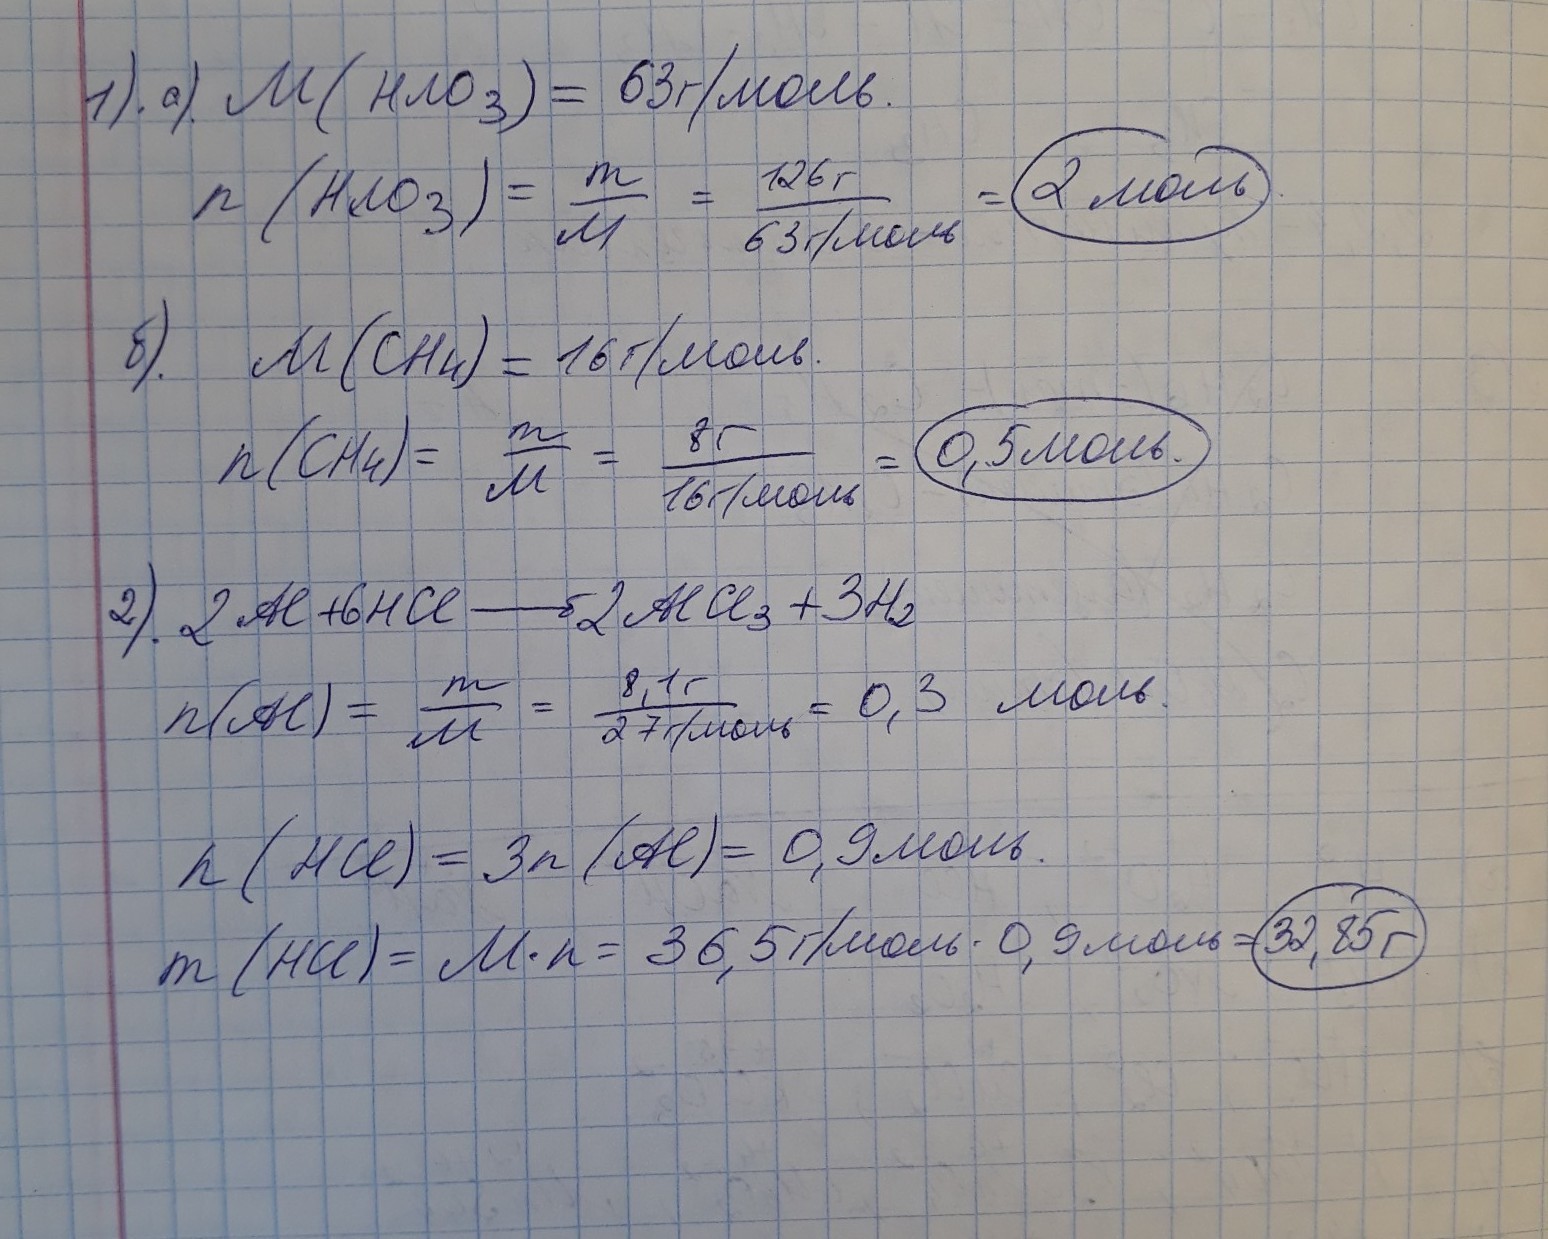 1). а). M(HNO3) = 63г/моль.
n (HNO3) = m/M = 126г/63г/моль = 2 моль.
б). M(CH4) = 16г/моль.
n(CH4) = m/M = 8г/16г/моль = 0,5моль.
2). 2Al+6HCl → 2AlCl3 + 3H2
n(Al) = m/M = 8,1г/27г/моль = 0,3 моль.
n(HCl) = 3n(Al) = 0,9моль.
m(HCl) = M·n = 36,5г/моль · 0,9моль = 32,85г